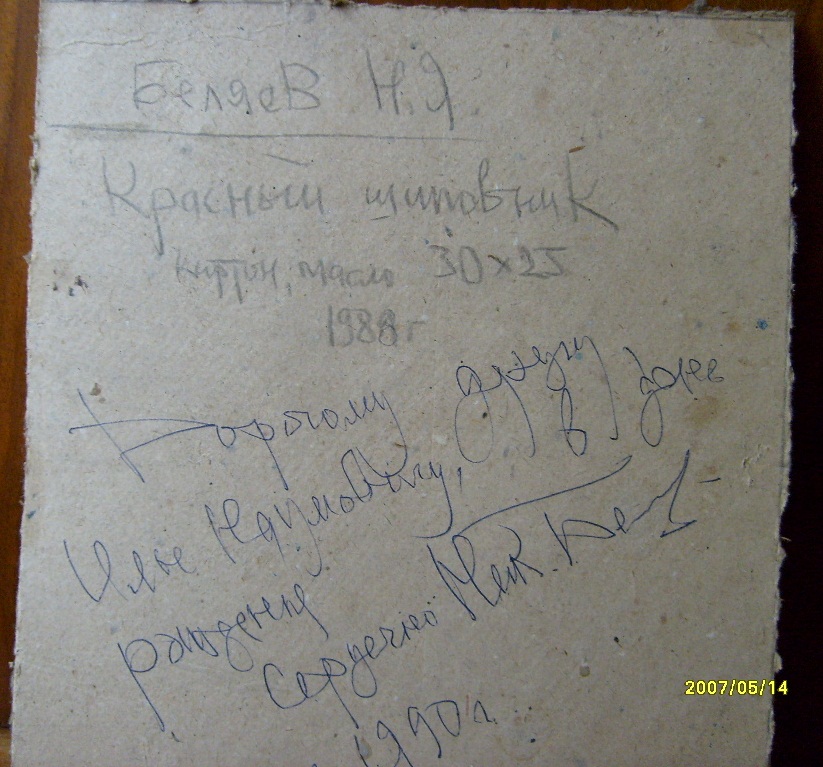 Беляев Н.Я.
Красный шиповник
картон, масло 30×25
1988 г
Дорогому другу
Илье Наумовичу, в день
рождения
сердечно Ник. Беляев
1990 г.
2007/05/14